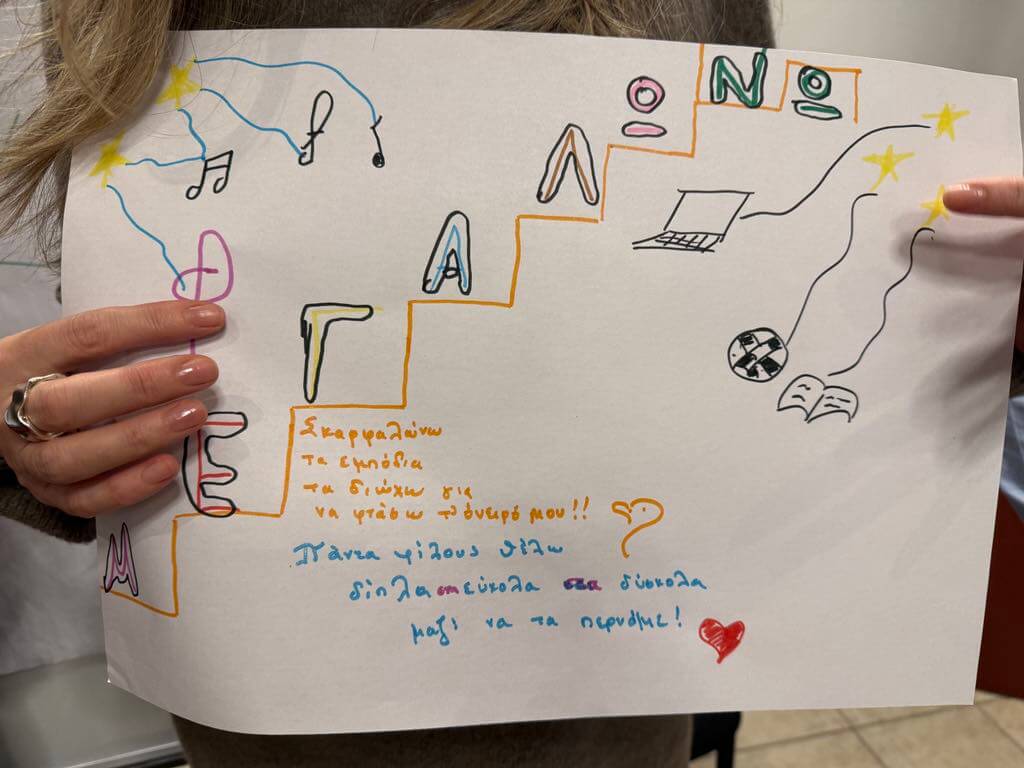 ΜΕΓΑΛΩΝΩ
Σκαρφαλώνω
τα εμπόδια
τα διώχω για
να φτάσω τ'όνειρό μου!!
Πάντα φίλους θέλω
δίπλα στα εύκολα στα δύσκολα
μαζί να τα περνάμε!